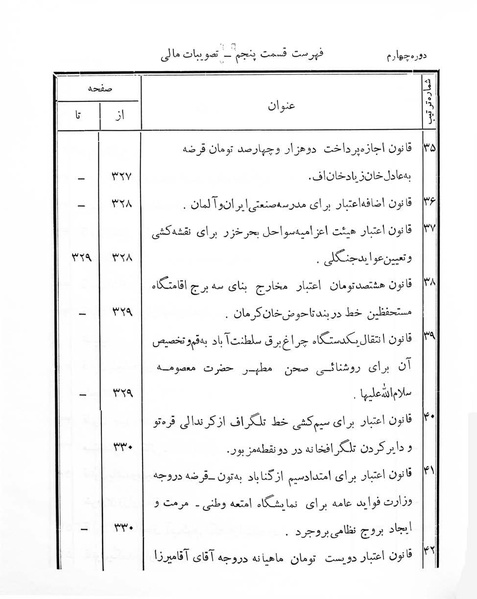 دوره چهارم
فهرست قسمت پنجم ـ تصویبات مالی
شماره ترتیب
عنوان
صفحه
از
تا
۳۵
قانون اجازه پرداخت دوهزار و چهارصد تومان قرضه
به عادل خان زیاد خان اف.
۳۲۷
–
۳۶
قانون اضافه اعتبار برای مدرسه صنعتی ایران و آلمان .
۳۲۸
–
۳۷
قانون اعتبار هیئت اعزامیه سواحل بحر خزر برای نقشه کشی
و تعیین عواید جنگلی .
۳۲۸
۳۲۹
۳۸
قانون هشتصد تومان اعتبار مخارج بنای سه برج اقامتگاه
مستحفظین خط دربند تا حوض خان کرمان .
۳۲۹
–
۳۹
قانون انتقال یکدستگاه چراغ برق سلطنت آباد به قم و تخصیص
آن برای روشنائی صحن مطهر حضرت معصومه
سلام الله علیها .
۳۲۹
–
۴۰
قانون اعتبار برای سیم کشی خط تلگراف از کرندالی قره تو
و دایر کردن تلگرافخانه در دو نقطه مزبور.
۳۳۰
۴۱
قانون اعتبار برای امتداد سیم از گناباد به تون ـ قرضه دروجه
وزارت فواید عامه برای نمایشگاه امتعه وطنی ـ مرمت و
ایجاد بروج نظامی بروجرد .
۳۳۰
–
۴۲
قانون اعتبار دویست تومان ماهیانه دروجه آقای آقامیرزا